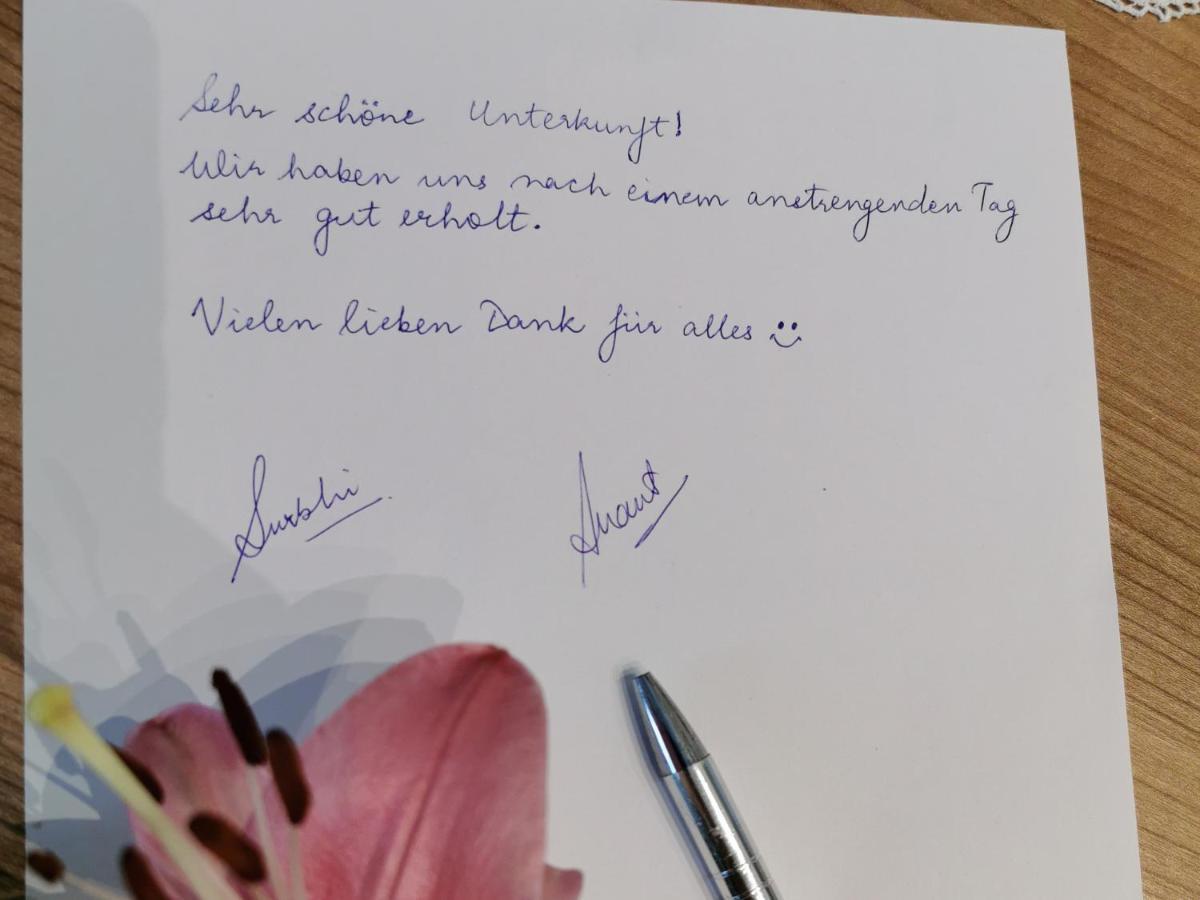 Sehr schöne Unterkunft!
Wir haben uns nach einem anstrengenden Tag
sehr gut erholt.
Vielen lieben Dank für alles
Surbhi Anant